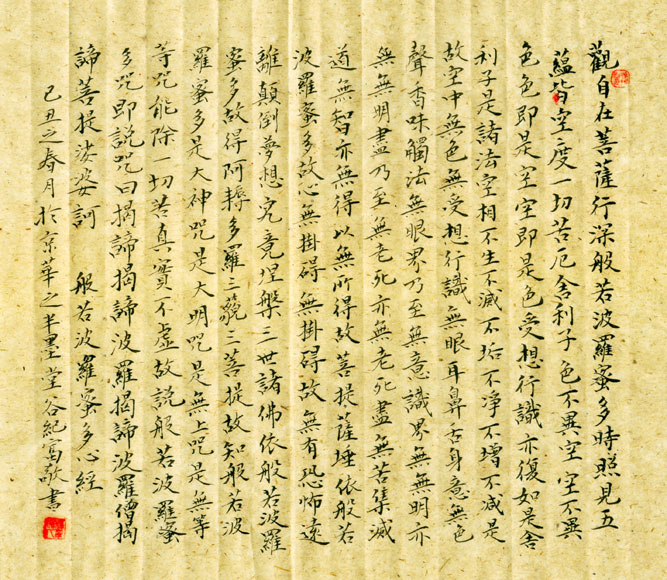 觀自在菩薩行深般若波羅蜜多時照見五
蘊皆空度一切苦厄舍利子色不異空空不異
色色即是空空即是色受想行識亦復如是舍
利子是諸法空相不生不滅不垢不净不增不減是
故空中無色無受想行識無眼耳鼻舌身意無色
聲香味觸法無眼界乃至無意識界無無明亦
無無明盡乃至無老死亦無老死盡無苦集滅
道無智亦無得以無所得故菩提薩埵依般若
波羅蜜多故心無掛碍無掛碍故無有恐怖遠
離顛倒夢想究竟涅槃三世諸佛依般若波羅
蜜多故得阿耨多羅三藐三菩提故知般若波
羅蜜多是大神咒是大明咒是無上咒是無等
等咒能除一切苦真實不虛故說般若波羅蜜
多咒即說咒曰揭諦揭諦波羅揭諦波羅僧揭
諦菩提娑婆訶 般若波羅蜜多心經
己丑之春月於京華之半墨堂谷紀敬書